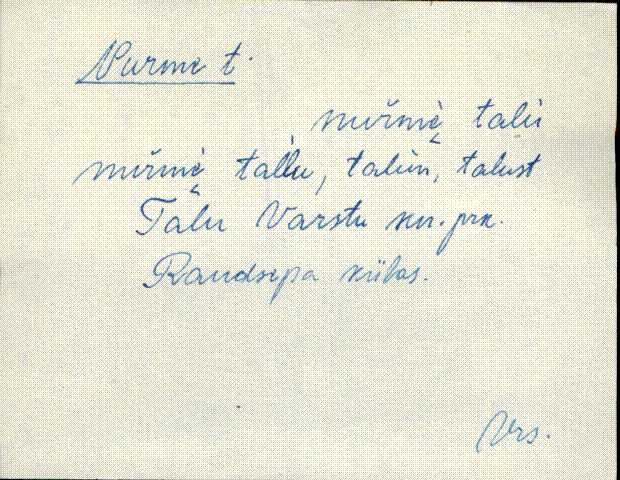 Nurme t.
nurmę talu
nurmę tallu, talun, talust
Talu Varstu kü. prk.
Raudsepa külas.
Vrs.